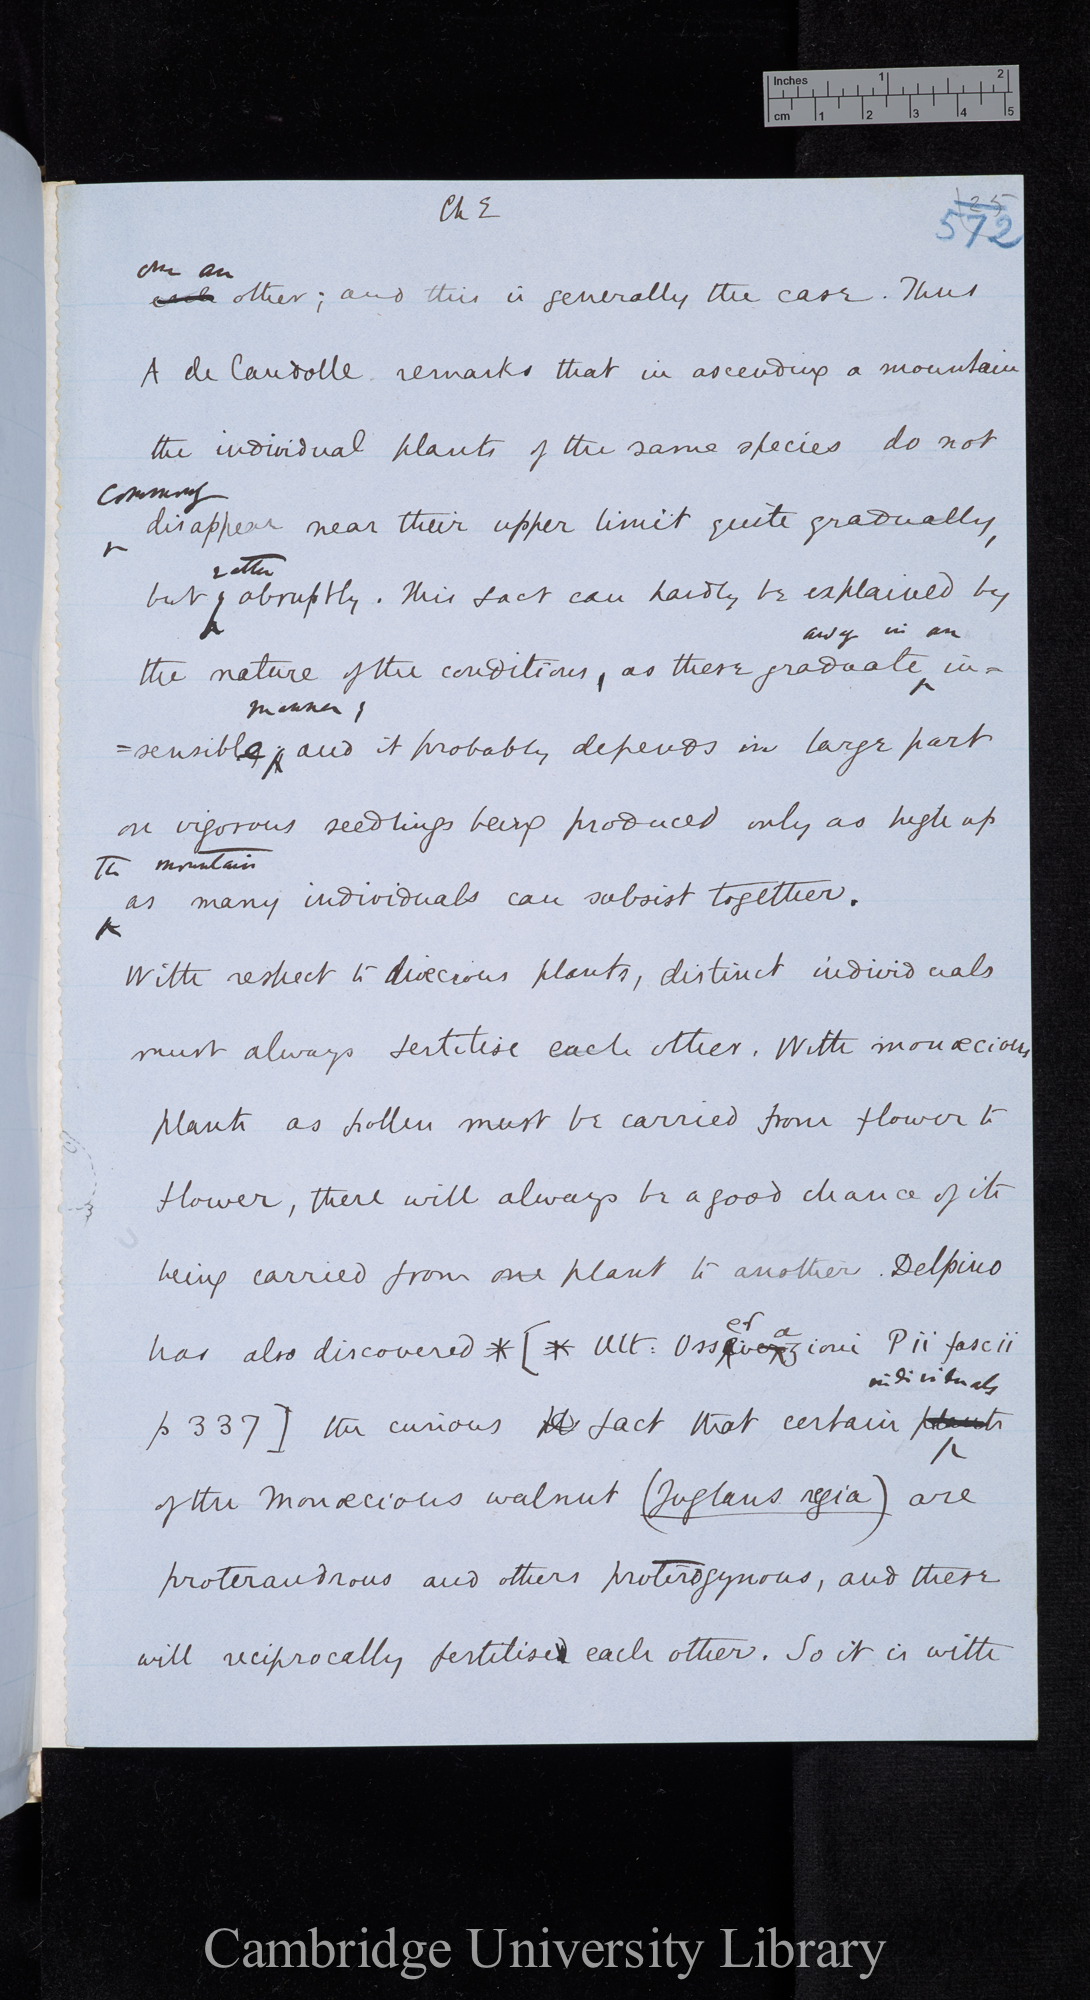 Inches 1 2
cm 1 2 3 4 5
Ch E
125
572
one an
each other; and this is generally the case. Thus
A de Candolle remarks that in ascending a mountain
the individual plants of the same species do not
commonly
disappear near their upper limit quite gradually,
rather
but abruptly. This fact can hardly be explained by
away in an
the nature of the conditions, as these graduate in=
manner;
=sensible; and it probably depends in large part
on vigorous seedlings being produced only as high up
the mountain
as many individuals can subsist together.
With respect to diœcious plants, distinct individuals
must always fertilise each other. With monœcious
plants as pollen must be carried from flower to
flower, there will always be a good chance of its
being carried from one plant to another. Delpino
er a
has also discovered *[* Ult: Ossivezioni P ii fascii
individuals
p 337] the curious fact that certain plants
of the Monœcious walnut (Juglans regia) are
proterandrous and others proterogynous, and these
will reciprocally fertilise each other. So it is with
Cambridge University Library